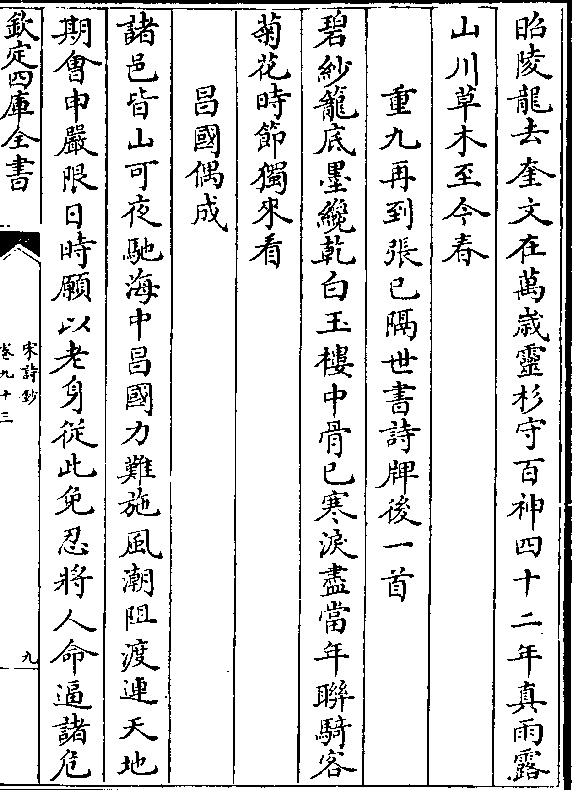 昭陵龍去奎文在萬歳靈杉守百神四十二年真雨露
山川草木至今春
重九再到張已隔世書詩牌後一首
碧紗籠底墨纔乾白玉樓中骨已寒淚盡當年聯騎客
菊花時節獨來看
昌國偶成
諸邑皆山可夜馳海中昌國力難施風潮阻渡連天地
期會申嚴限日時願以老身從此免忍將人命逼諸危
欽定四庫全書
宋詩鈔
卷九十三
九